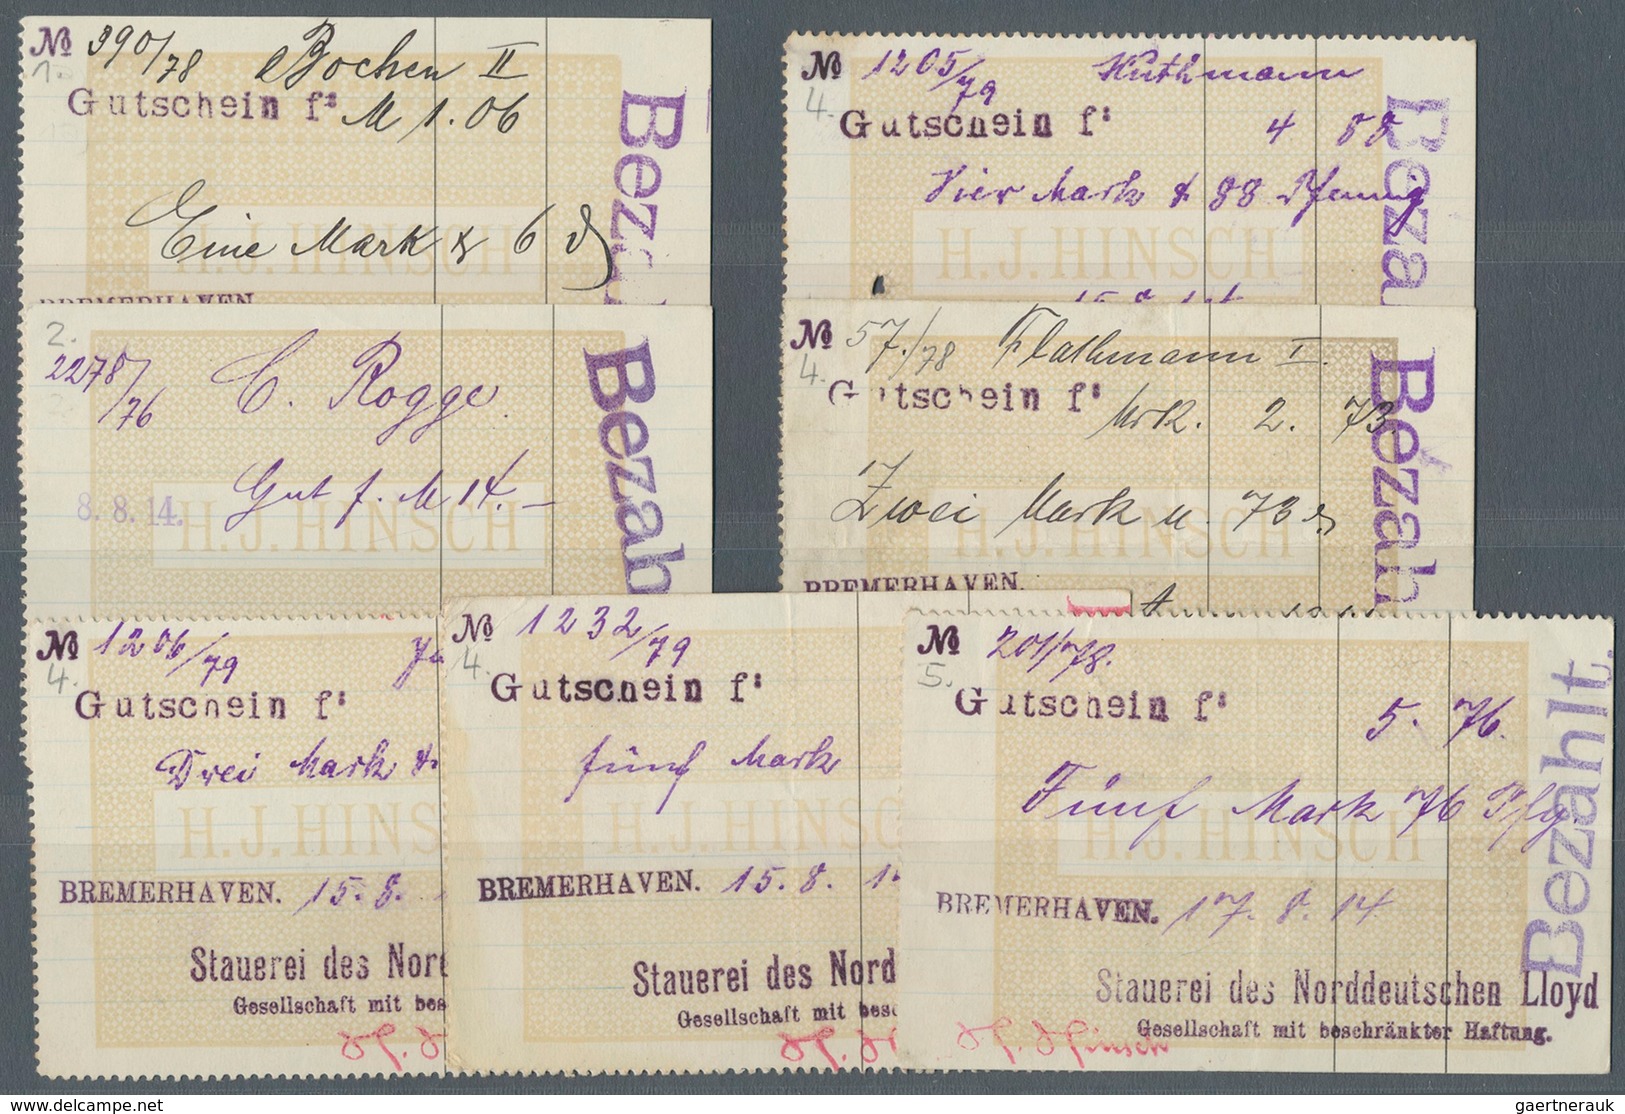 № 390/78 Bochen II
1.
Gutschein f: M 1.06
Eine Mark & 6
H.J. HINSCH
BREMERHAVEN.
Beza
№ 1205/79 Huthmann
4.
Gutschein f: 4 88
Vier Mark & 88 Pfennig
H.J. HINSCH
Beza
2.
2278/76 C. Rogge.
Gut f. M 14.—
8.8.14.
H.J. HINSCH
Bezah
№ 57./78 Flathmann I.
4.
Gutschein f: Mrk. 2. 73.
Zwei Mark u. 73
H.J. HINSCH
BREMERHAVEN.
Bezah
№ 1206/79
4.
Gutschein f:
Drei Mark &
H.J. HINS
BREMERHAVEN. 15.8.
Stauerei des Nord
Gesellschaft mit bes
№ 1232/79
4.
Gutschein f:
fünf Mark
H.J. HINSCH
BREMERHAVEN. 15.8. 1
Stauerei des Nord
Gesellschaft mit besc
№ 201/78.
5.
Gutschein f: 5. 76.
Fünf Mark 76 Pfg.
H.J. HINSCH
BREMERHAVEN. 17.8.14
Stauerei des Norddeutschen Lloyd
Gesellschaft mit beschränkter Haftung.
H. Hinsch
Bezahlt.
www.delcampe.net
gaertnerauk